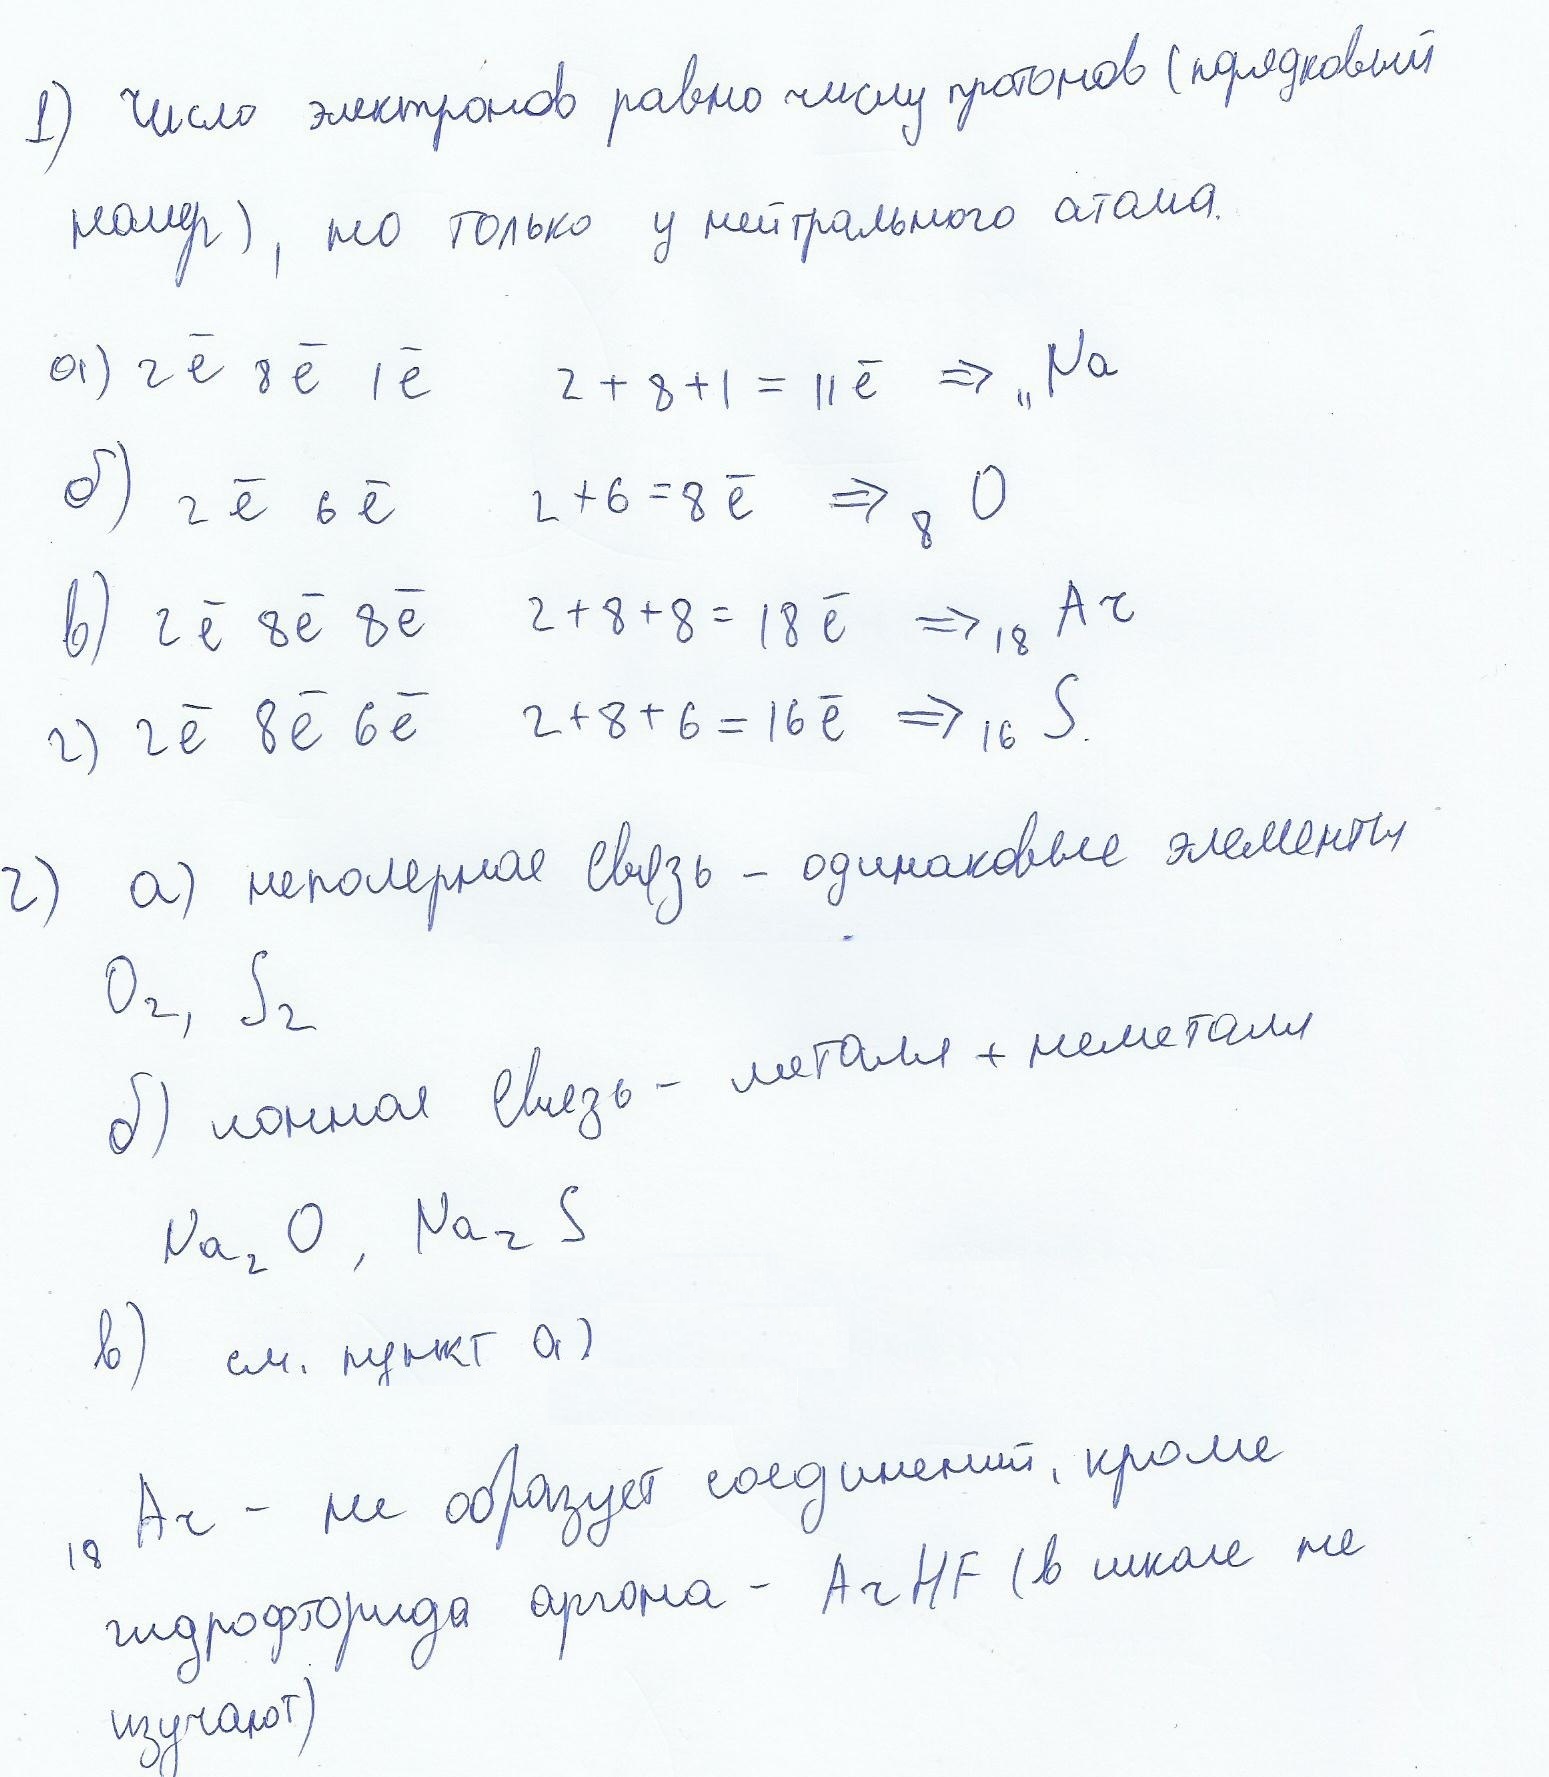 1) Число электронов равно числу протонов (порядковый
номер), но только у нейтрального атома.
а) 2ē 8ē 1ē 2+8+1=11ē ⇒ ₁₁Na
б) 2ē 6ē 2+6=8ē ⇒ ₈O
в) 2ē 8ē 8ē 2+8+8=18ē ⇒ ₁₈Ar
г) 2ē 8ē 6ē 2+8+6=16ē ⇒ ₁₆S.
2) а) неполерная связь - одинаковые элементы
O₂, S₂
б) ионная связь - металл + неметалл
Na₂O, Na₂S
в) см. пункт а)
₁₈Ar - не образует соединений, кроме
гидрофторида аргона - ArHF (в школе не
изучают)